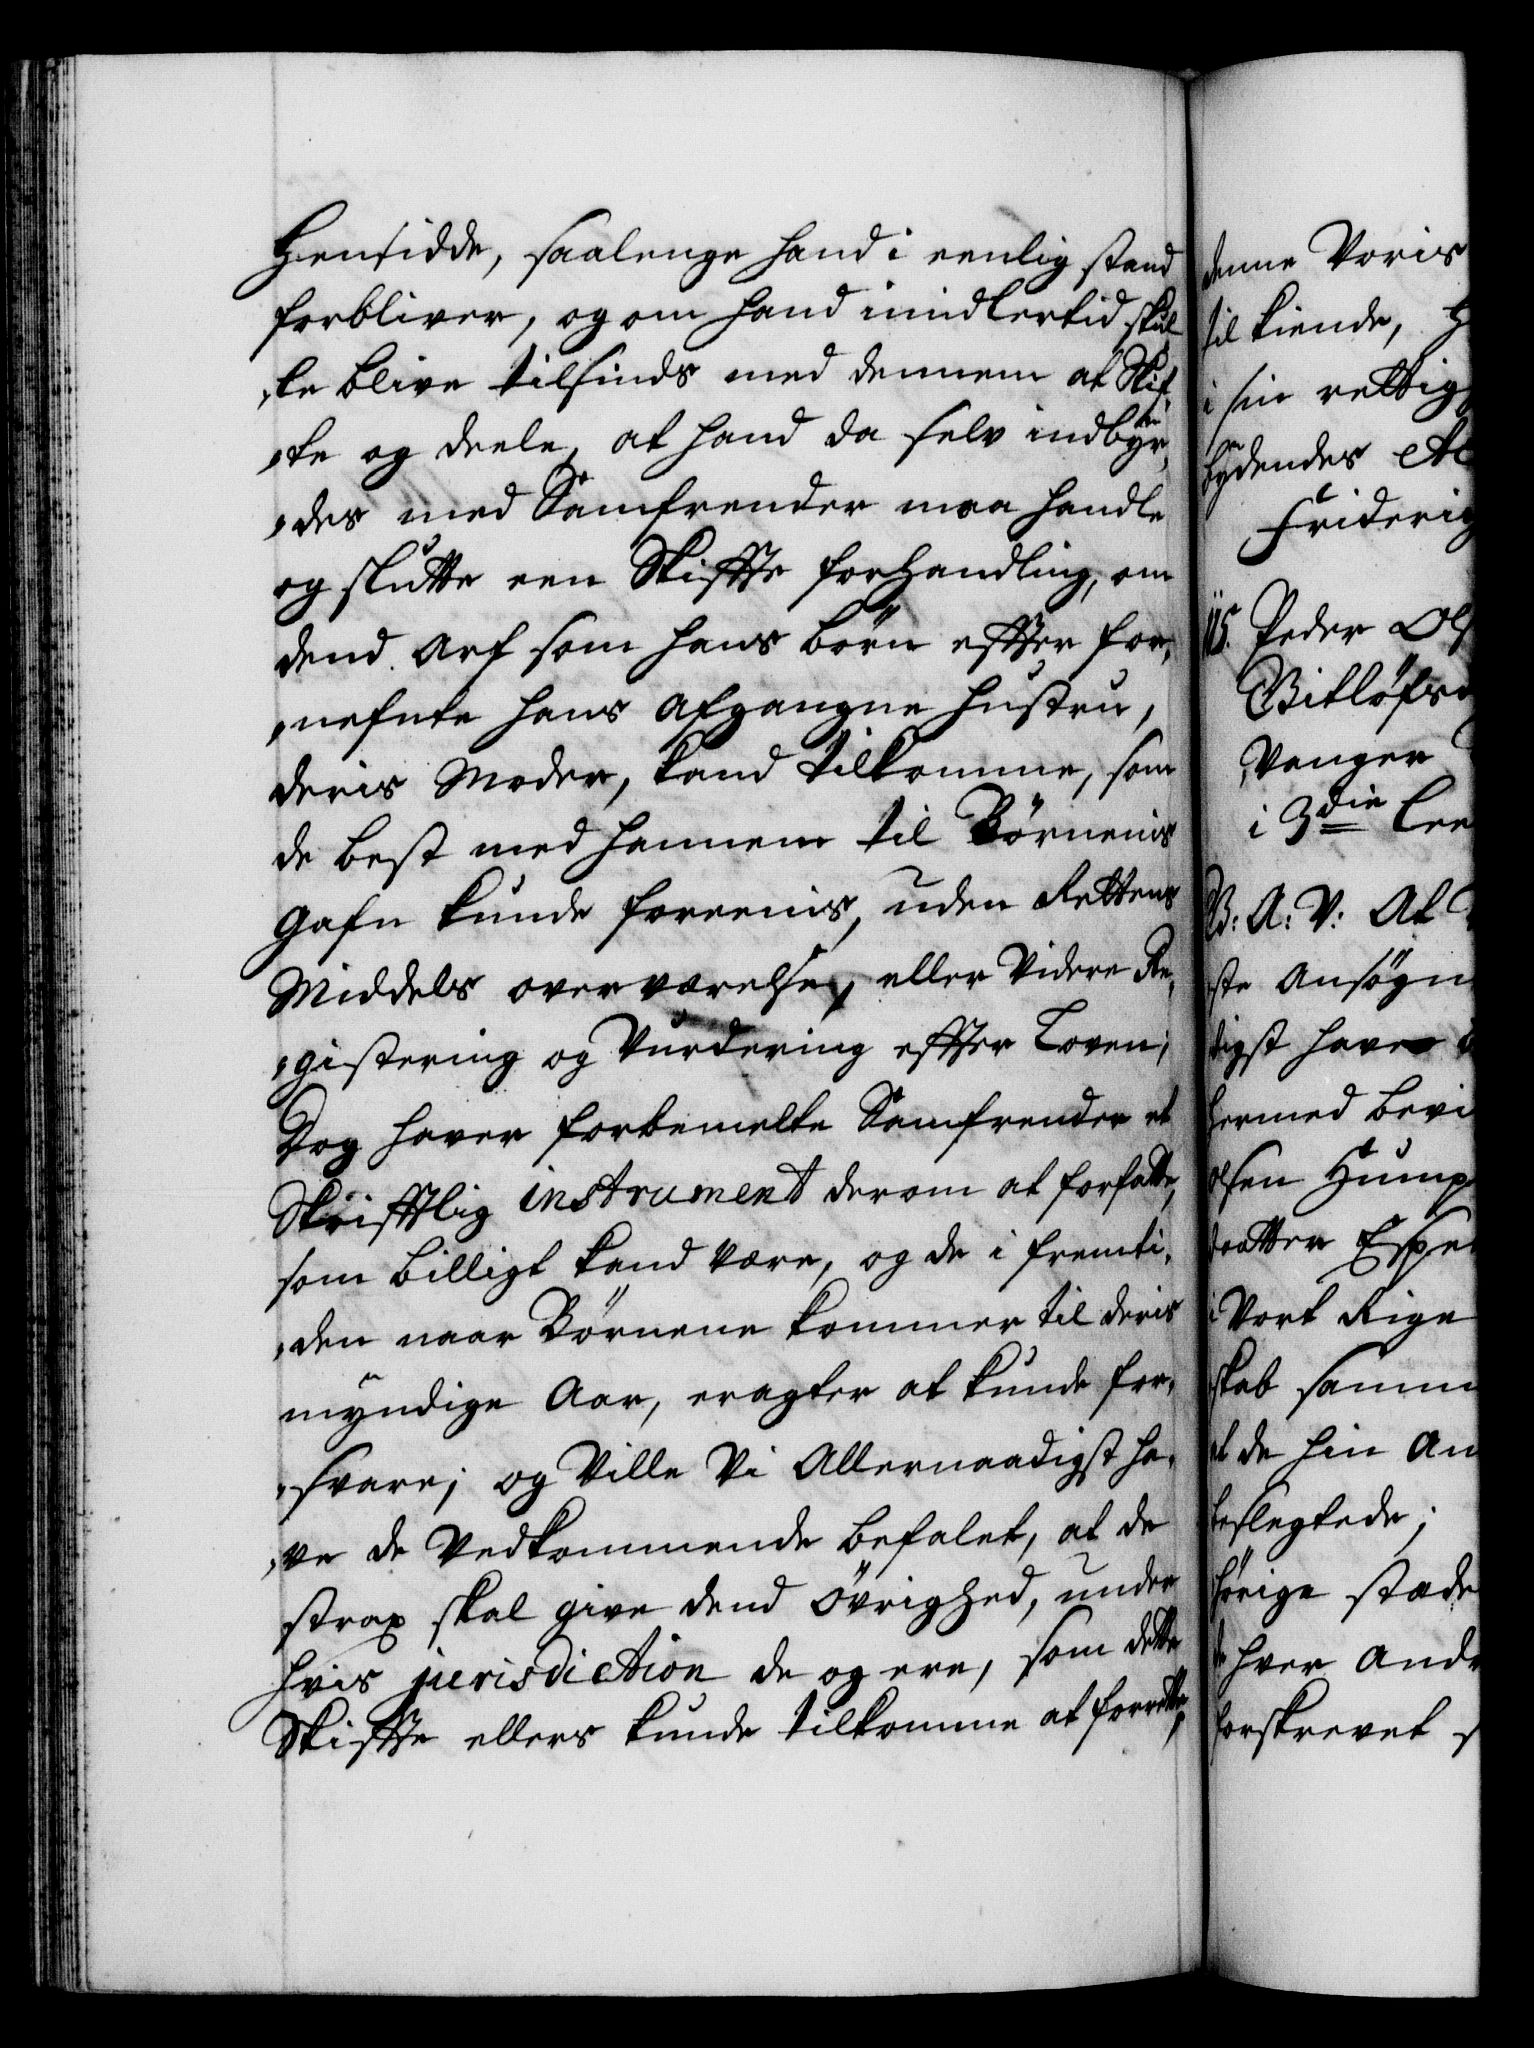 Hensidde, saalenge hand i eenlig stand
forbliver, og om hand imidlertid skul¬
,te blive tilsinds med dennem at Skif,
,te og deele, at hand da selv indbyr,
,des med Samfrender maa handle
og slutte een Skiffte forHandling, om
dend Arf som hans börn effter for,
,nefnte hans afgangne hustru,
deris Moder, kand tilkomme, som
de best med hannem til Börnenis
gafn kunde foreenis, uden Rettens
Middels overværelse, eller Videre Re,
,gistering og Vurdering effter Loven;
Dog haver forbemelte Samfrender et
Skrifftlig instrument derom at forfatte,
som billigt kand være, og de i fremti,
,den naar Börnene kommer til deris
myndige Aar, eragter at kunde for,
,svare; og Ville Vi Allernaadigst ha,
,ve de Vedkommende befalet, at de
strax skal give dend övrighed, under
hvis jurisdiction de og ere, som dette
Skiffte ellers kunde tilkomme at forrette,
denne Voris
til kiende, H
i sin rettig
bydendes etc
Friderig
115. Peder Ols
Bitlöfs
Vanger
i 3die Lee
B: A: V: At
ste Ansögn
digst have
hermed bevi
olsen Hump
daatter Espe
i Vort Rige
skab samm
at de hin An
beslegtede;
hörige stæde
hver Andr
forskrevet s